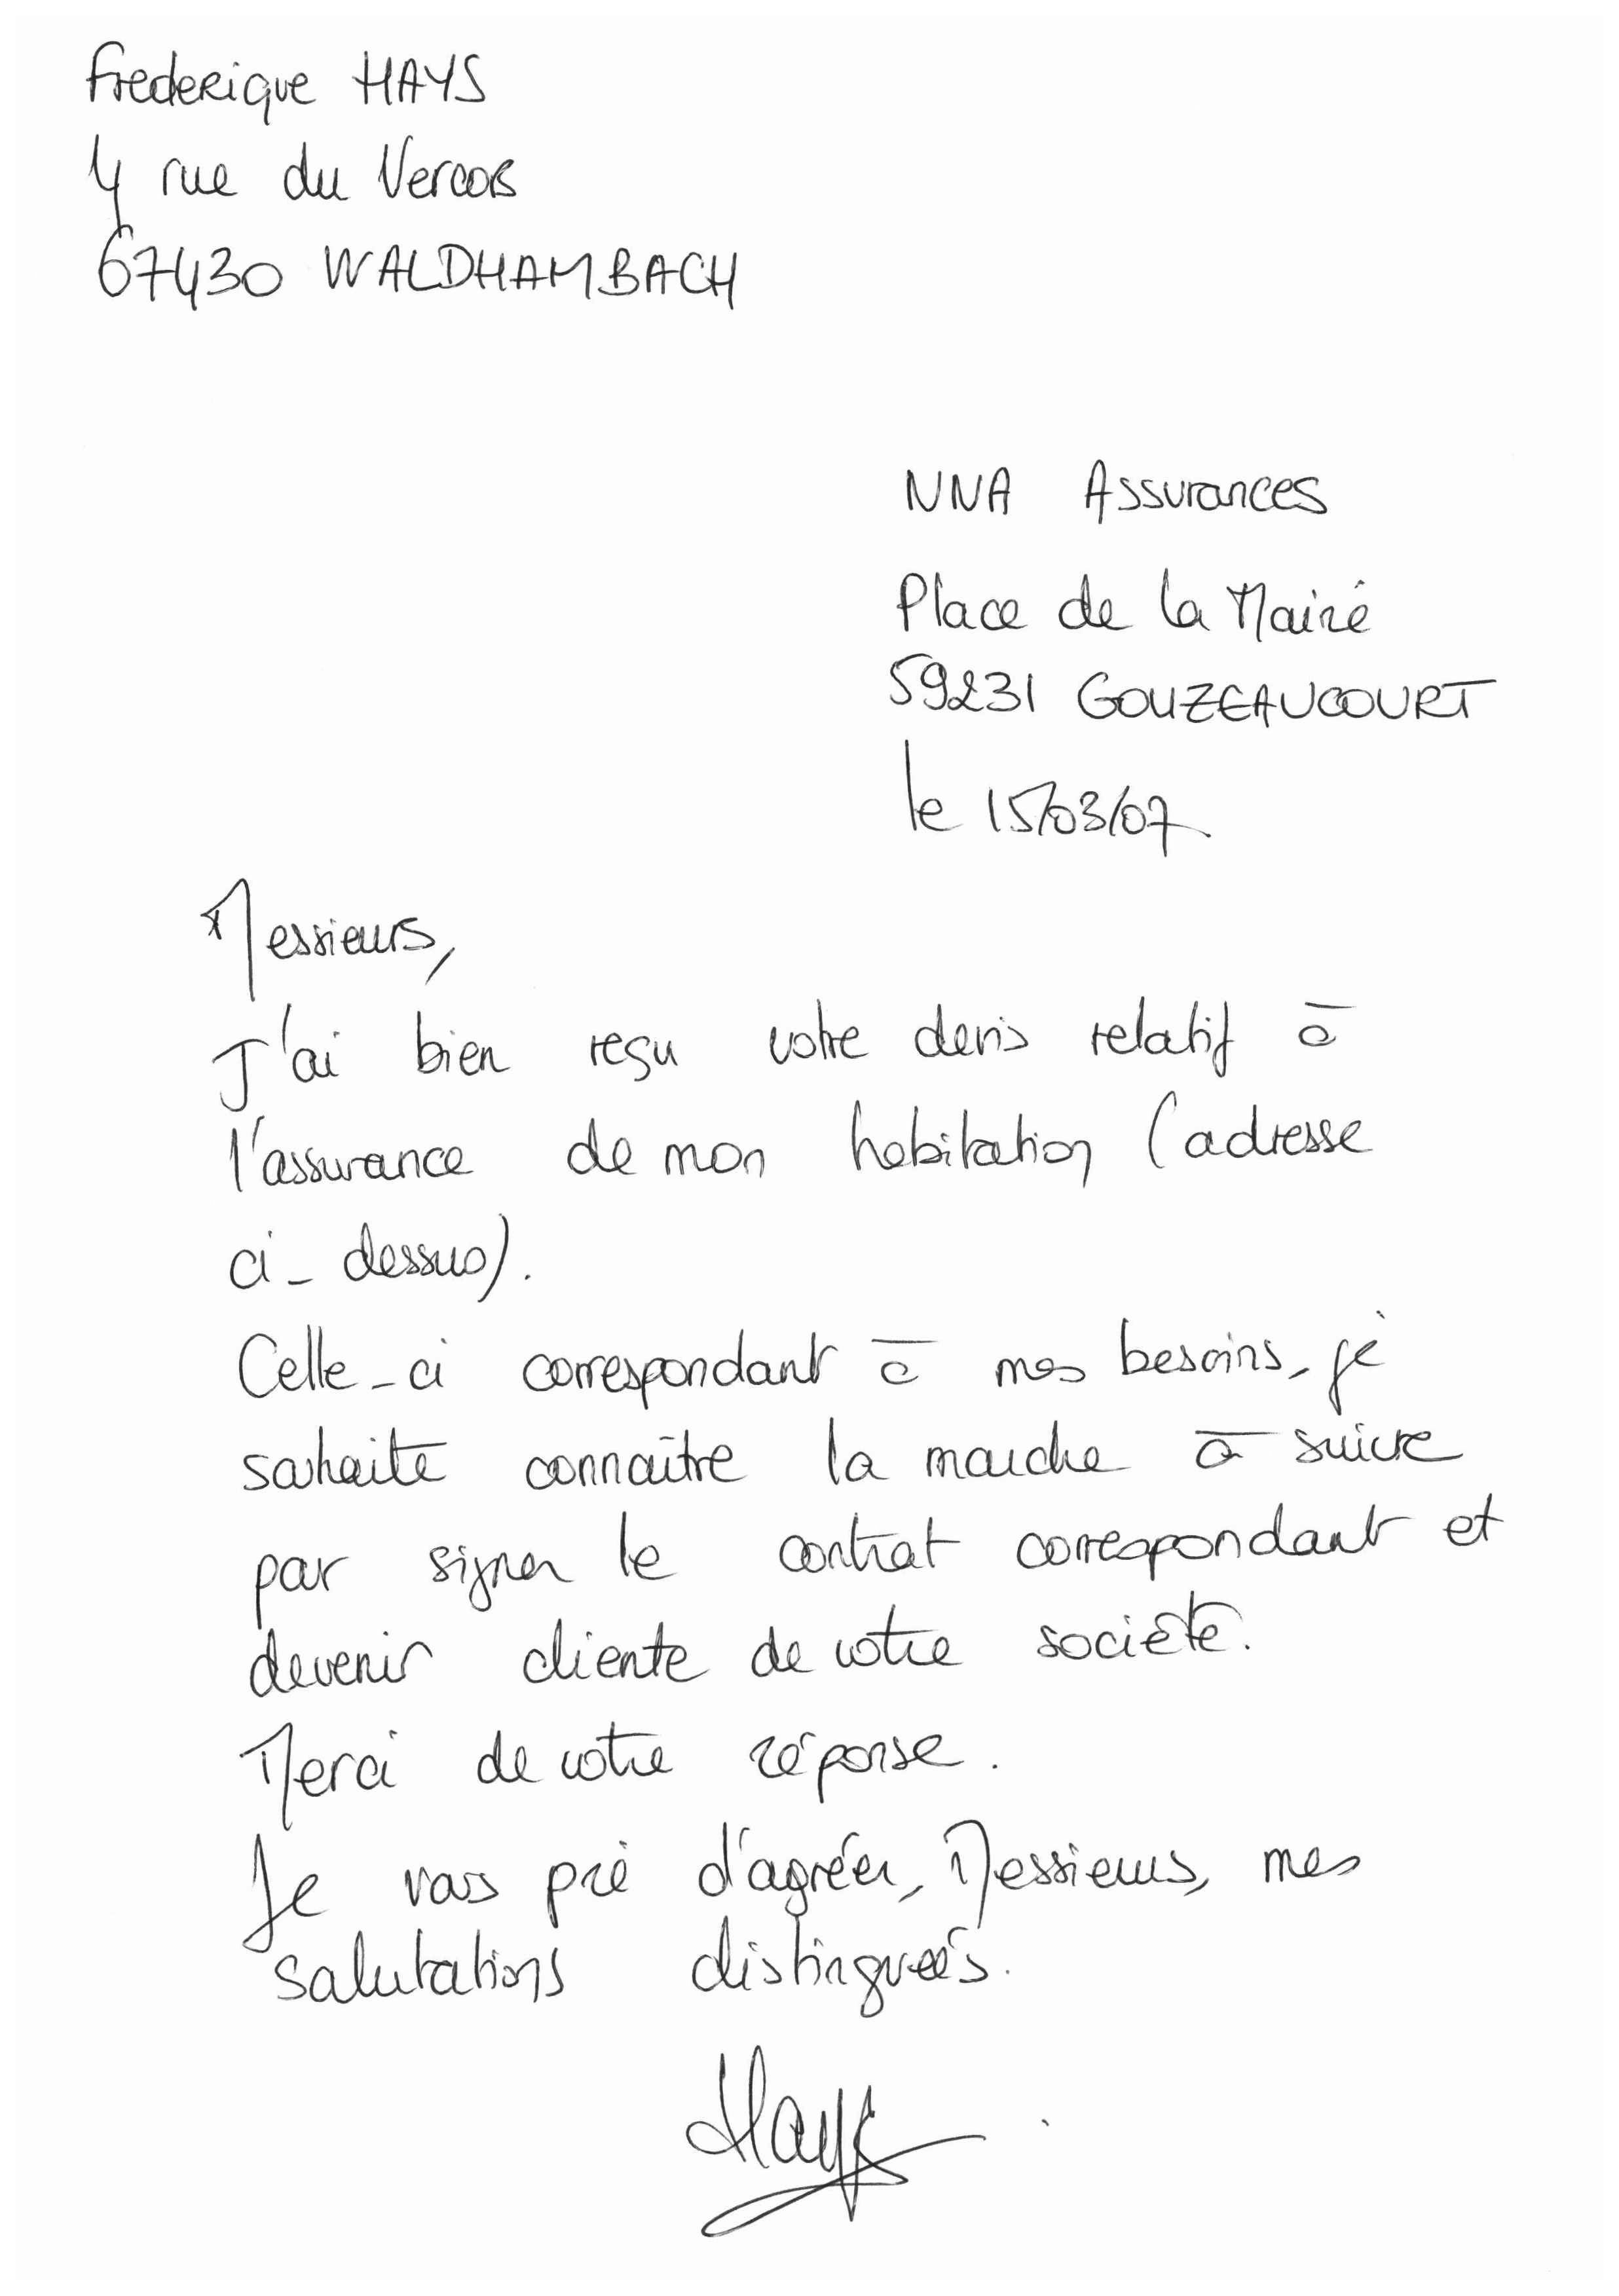 Frederique HAYS
4 rue du Vercors
67430 WALDHAMBACH
NNA Assurances
Place de la Mairie
59231 GOUZEAUCOURT
le 15/03/07
Messieurs,
J'ai bien reçu votre devis relatif à
l'assurance de mon habitation (adresse
ci-dessus).
Celle-ci correspondant à mes besoins, je
souhaite connaître la marche à suivre
par signer le contrat correspondant et
devenir cliente de votre société.
Merci de votre réponse.
Je vous prie d'agréer, Messieurs, mes
salutations distinguées.
Hays